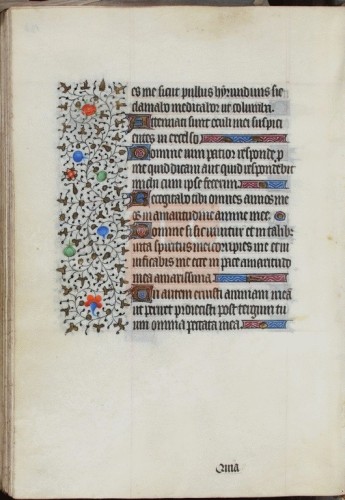 es me sicut pullus hyrundinis sic
clamabo meditabor ut columba.
Attenuati sunt oculi mei suspici
entes in excelso.
Domine uim patior responde p
me quid dicam aut quid respondebit
michi cum ipse fecerim.
Recogitabo tibi omnes annos me
os in amaritudine anime mee.
Domine si sic uiuitur et in talib
uita spiritus mei corripies me et ui
uificabis me ecce in pace amaritudo
mea amarissima.
Tu autem eruisti animam meā
ut periret proiecisti post tergum tu
um omnia peccata mea.
Quia